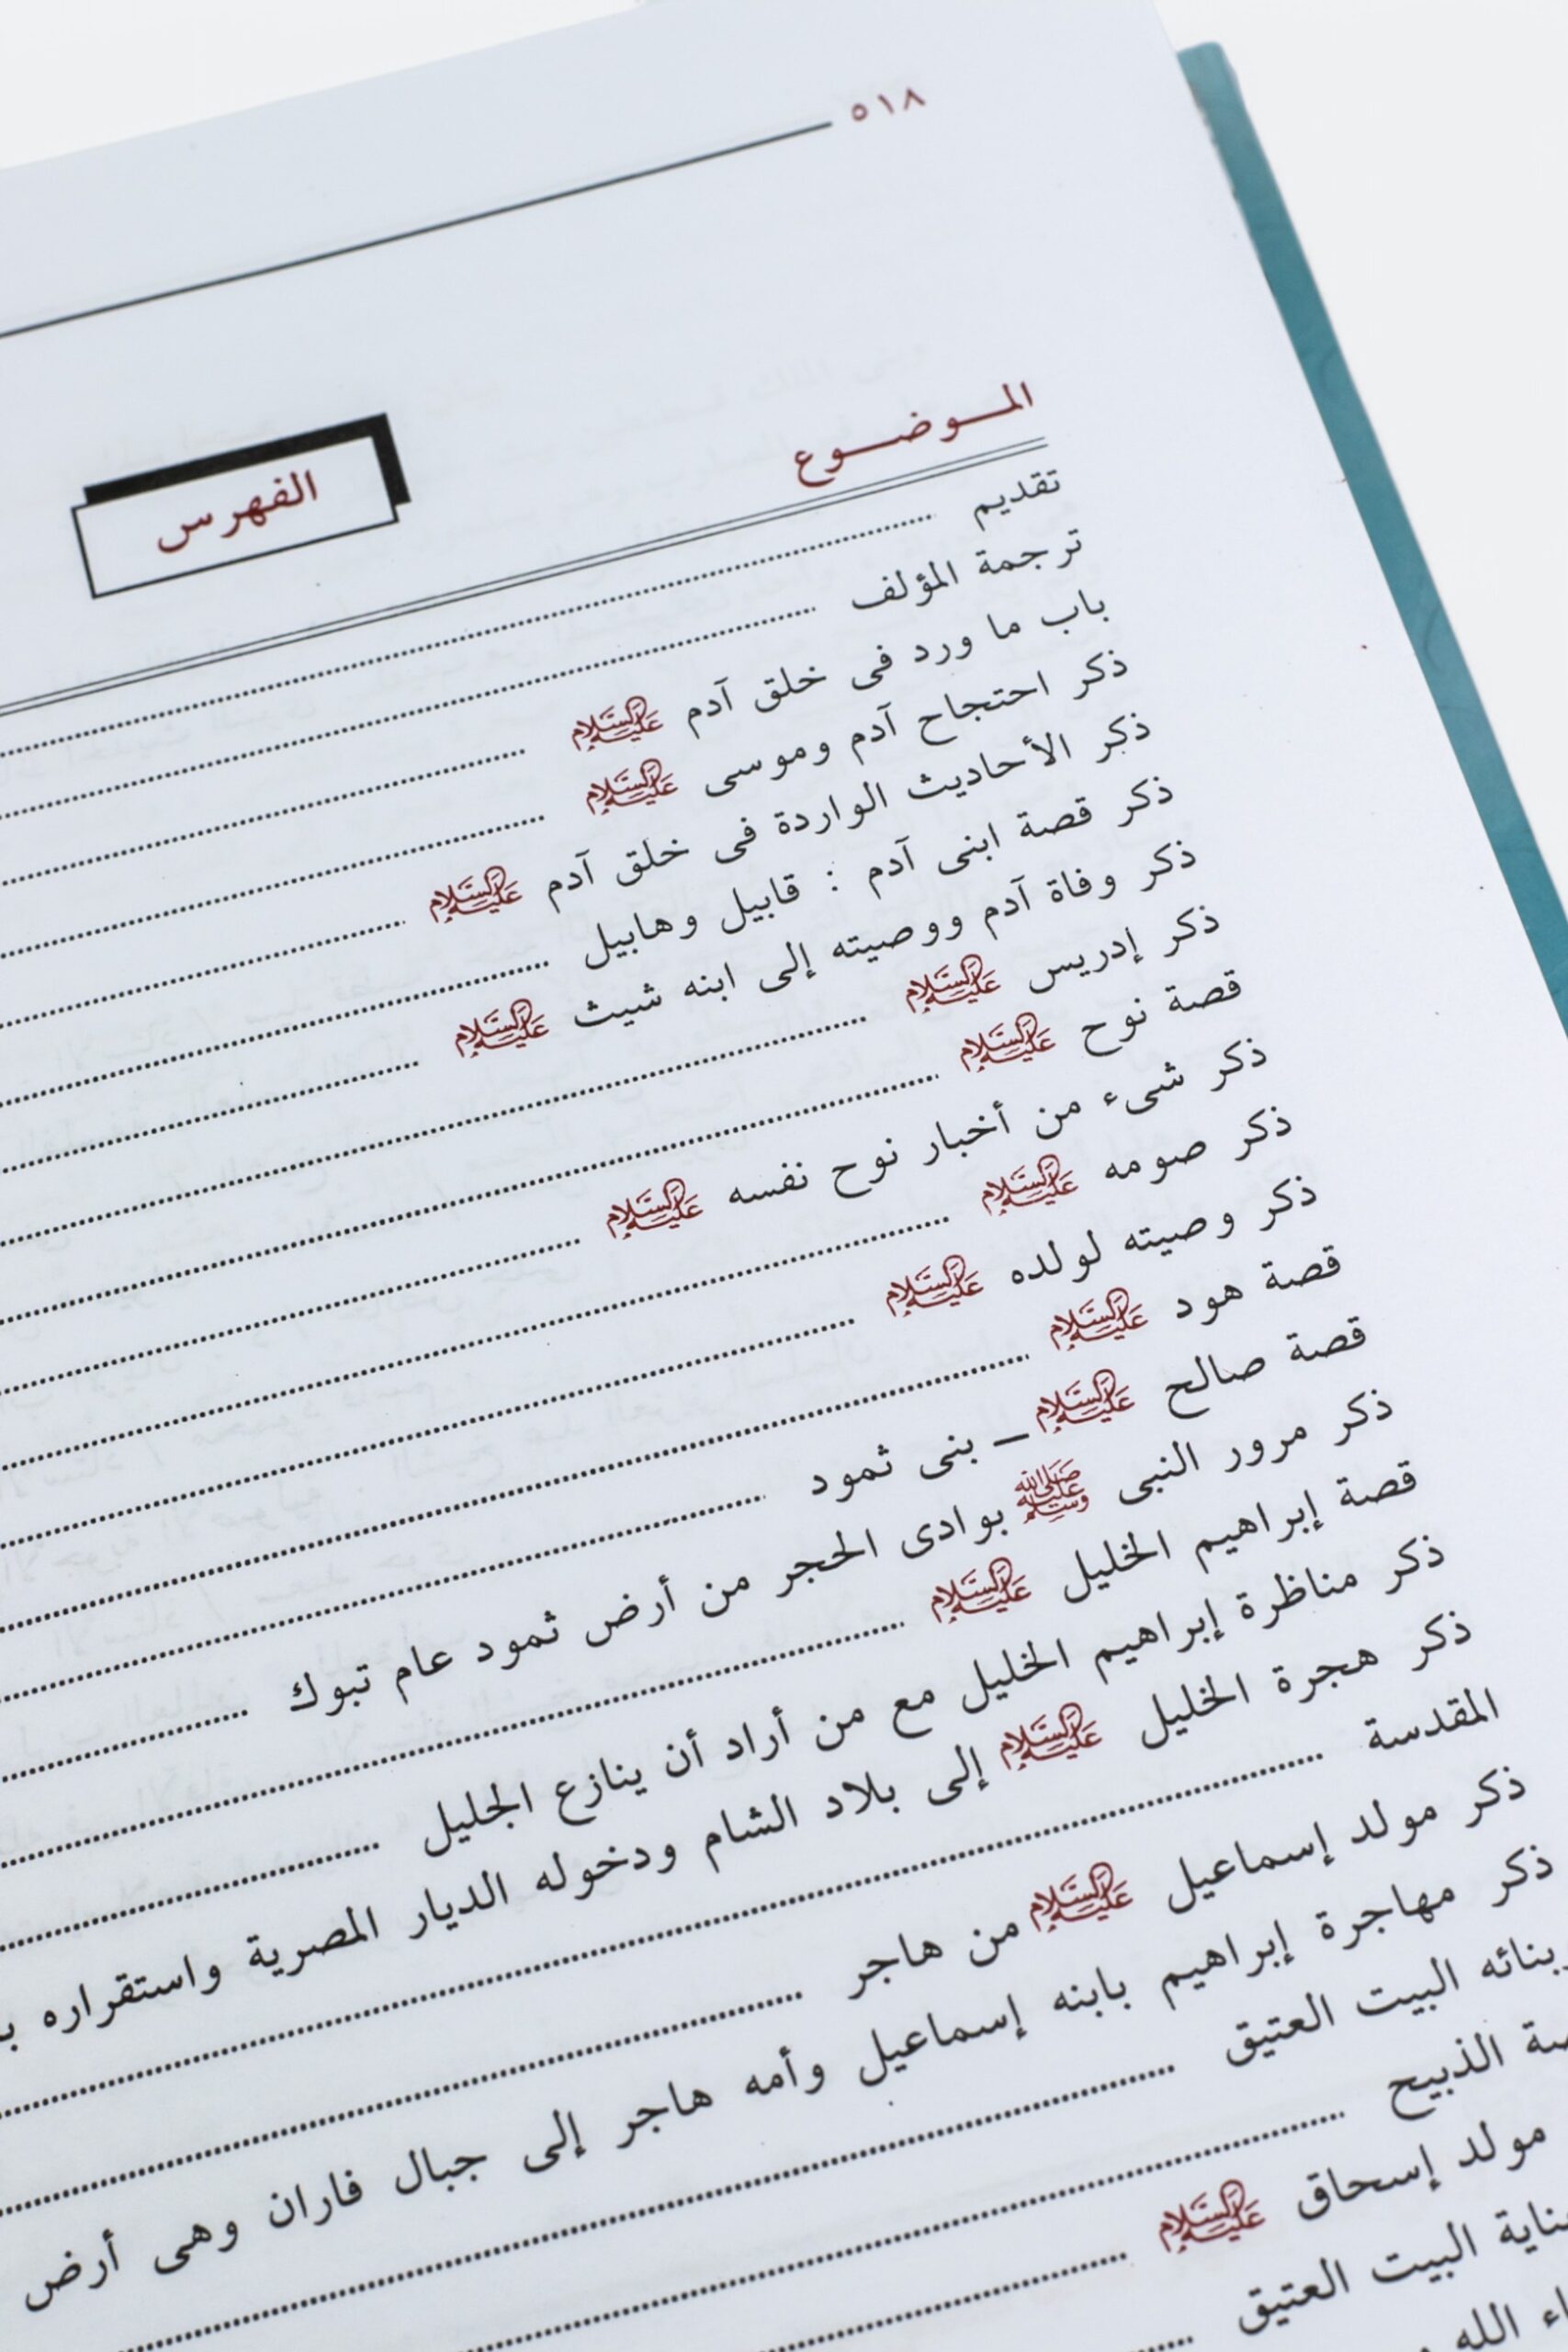 ٥١٨
الفهرس
المـــوضـــوع
تقديم
ترجمة المؤلف
باب ما ورد فى خلق آدم عَلَيْهِ السَّلَام
ذكر احتجاج آدم وموسى عَلَيْهِ السَّلَام
ذكر الأحاديث الواردة فى خلق آدم عَلَيْهِ السَّلَام
ذكر قصة ابنى آدم : قابيل وهابيل
ذكر وفاة آدم ووصيته إلى ابنه شيث عَلَيْهِ السَّلَام
ذكر إدريس عَلَيْهِ السَّلَام
قصة نوح عَلَيْهِ السَّلَام
ذكر شىء من أخبار نوح نفسه عَلَيْهِ السَّلَام
ذكر صومه عَلَيْهِ السَّلَام
ذكر وصيته لولده عَلَيْهِ السَّلَام
قصة هود عَلَيْهِ السَّلَام
قصة صالح عَلَيْهِ السَّلَام – بنى ثمود
ذكر مرور النبى ﷺ بوادى الحجر من أرض ثمود عام تبوك
قصة إبراهيم الخليل عَلَيْهِ السَّلَام
ذكر مناظرة إبراهيم الخليل مع من أراد أن ينازع الجليل
ذكر هجرة الخليل عَلَيْهِ السَّلَام إلى بلاد الشام ودخوله الديار المصرية واستقراره
المقدسة
ذكر مولد إسماعيل عَلَيْهِ السَّلَام من هاجر
ذكر مهاجرة إبراهيم بابنه إسماعيل وأمه هاجر إلى جبال فاران وهى أرض
وبنائه البيت العتيق
الذبيح
مولد إسحاق عَلَيْهِ السَّلَام
البيت العتيق
الله